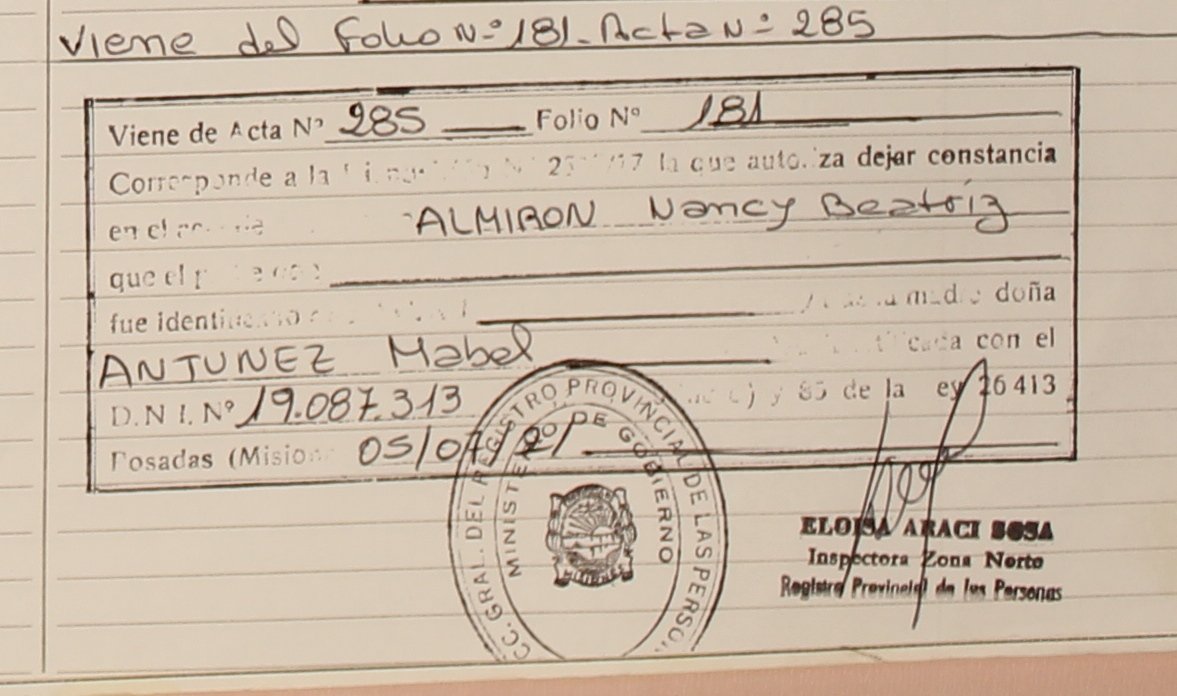 Viene del Folio N° 181 - Acta N° 285
Viene de Acta N° 285 Folio N° 181
Corresponde a la la que autoriza dejar constancia
en el ALMIRON Nancy Beatriz
que el
fue identi madre doña
ANTUNEZ Mabel con el
D.N I. N° 19.087.313 y 85 de la ey 26 413
Posadas (Mision 05/07/21
CC. GRAL. DEL REGISTRO PROVINCIAL DE LAS PERSON
MINISTERIO DE GOBIERNO
MISIONES
ELOISA ARACI SOSA
Inspectora Zona Norte
Registro Provincial de las Personas